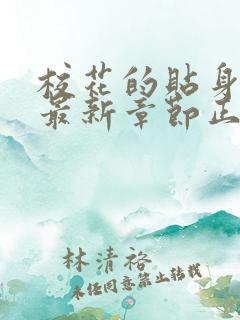 校花的贴身
最新章节正
林清裕
未经同意禁止转载